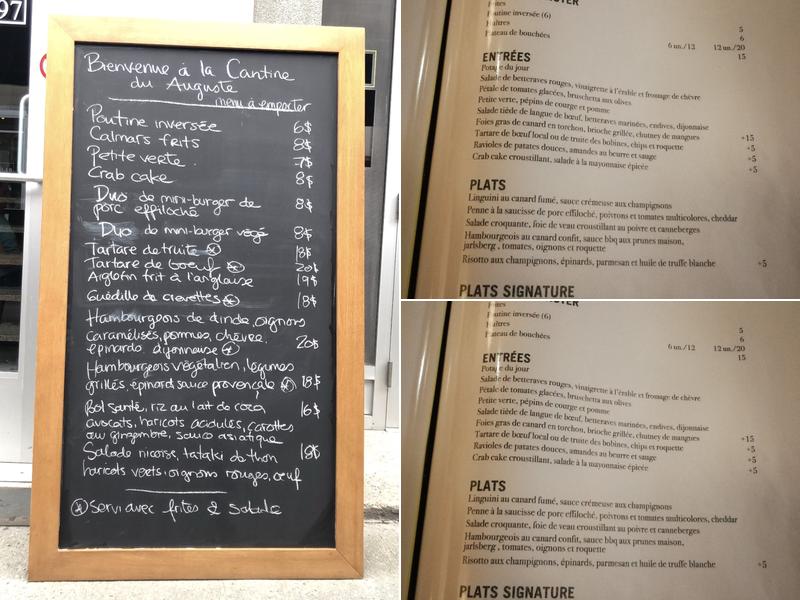 97
Bienvenue à la Cantine
du Auguste
menu à emporter
Poutine inversée 6$
Calmars frits 8$
Petite verte. 7$
Crab cake 8$
Duo de mini-burger de
porc effiloché 8$
Duo de mini-burger végé 8$
Tartare de truite * 18$
Tartare de boeuf * 20$
Aiglefin frit à l'anglaise 19$
Guédille de crevettes * 18$
Hamburgeois de dinde, oignons
caramélisés, pommes, chèvre,
épinards dijonnaise * 20$
Hambourgeois végétalien, légumes
grillés, épinard sauce provençale * 18$
Bol santé, riz au lait de coco 16$
avocats, haricots acidulés, carottes
au gingembre, sauce asiatique
Salade niçoise, tataki de thon 18$
haricots verts, oignons rouges, oeuf
* Servi avec frites & Salade
Frites
Poutine inversée (6) 5
Huîtres 6
Plateau de bouchées 6 un./13 12 un./20
15
ENTRÉES
Potage du jour
Salade de betteraves rouges, vinaigrette à l'érable et fromage de chèvre
Pétale de tomates glacées, bruschetta aux olives
Petite verte, pépins de courge et pomme
Salade tiède de langue de bœuf, betteraves marinées, endives, dijonnaise
Foies gras de canard en torchon, brioche grillée, chutney de mangues +15
Tartare de bœuf local ou de truite des bobines, chips et roquette +5
Ravioles de patates douces, amandes au beurre et sauge +5
Crab cake croustillant, salade à la mayonnaise épicée +5
PLATS
Linguini au canard fumé, sauce crémeuse aux champignons
Penne à la saucisse de porc effiloché, poivrons et tomates multicolores, cheddar
Salade croquante, foie de veau croustillant au poivre et canneberges
Hambourgeois au canard confit, sauce bbq aux prunes maison,
jarlsberg , tomates, oignons et roquette
Risotto aux champignons, épinards, parmesan et huile de truffe blanche +5
PLATS SIGNATURE
Frites
Poutine inversée (6) 5
Huîtres 6
Plateau de bouchées 6 un./13 12 un./20
15
ENTRÉES
Potage du jour
Salade de betteraves rouges, vinaigrette à l'érable et fromage de chèvre
Pétale de tomates glacées, bruschetta aux olives
Petite verte, pépins de courge et pomme
Salade tiède de langue de bœuf, betteraves marinées, endives, dijonnaise
Foies gras de canard en torchon, brioche grillée, chutney de mangues +15
Tartare de bœuf local ou de truite des bobines, chips et roquette +5
Ravioles de patates douces, amandes au beurre et sauge +5
Crab cake croustillant, salade à la mayonnaise épicée +5
PLATS
Linguini au canard fumé, sauce crémeuse aux champignons
Penne à la saucisse de porc effiloché, poivrons et tomates multicolores, cheddar
Salade croquante, foie de veau croustillant au poivre et canneberges
Hambourgeois au canard confit, sauce bbq aux prunes maison,
jarlsberg , tomates, oignons et roquette
Risotto aux champignons, épinards, parmesan et huile de truffe blanche +5
PLATS SIGNATURE